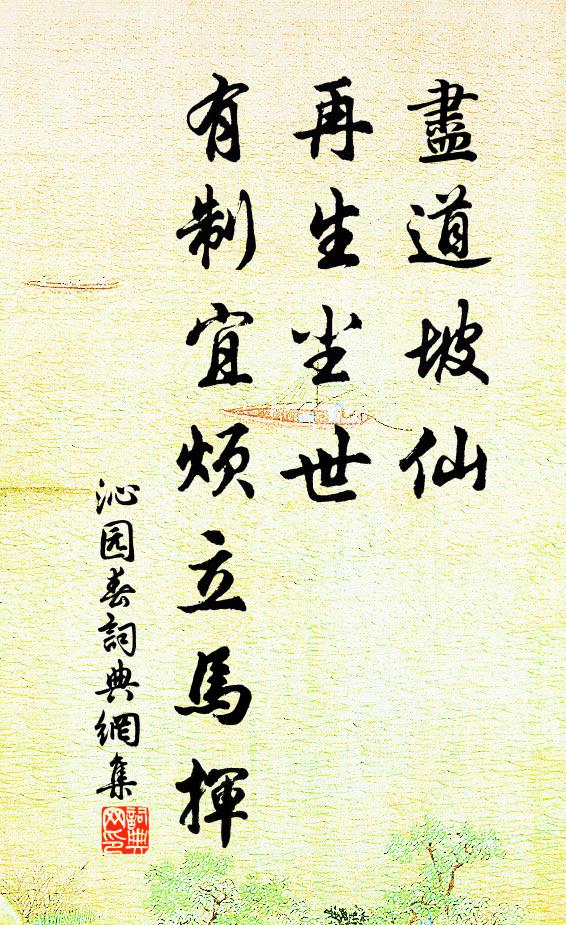 盡道坡仙
再生尘世
有制宜煩立馬揮
沁园春詞典網集
詞典网印